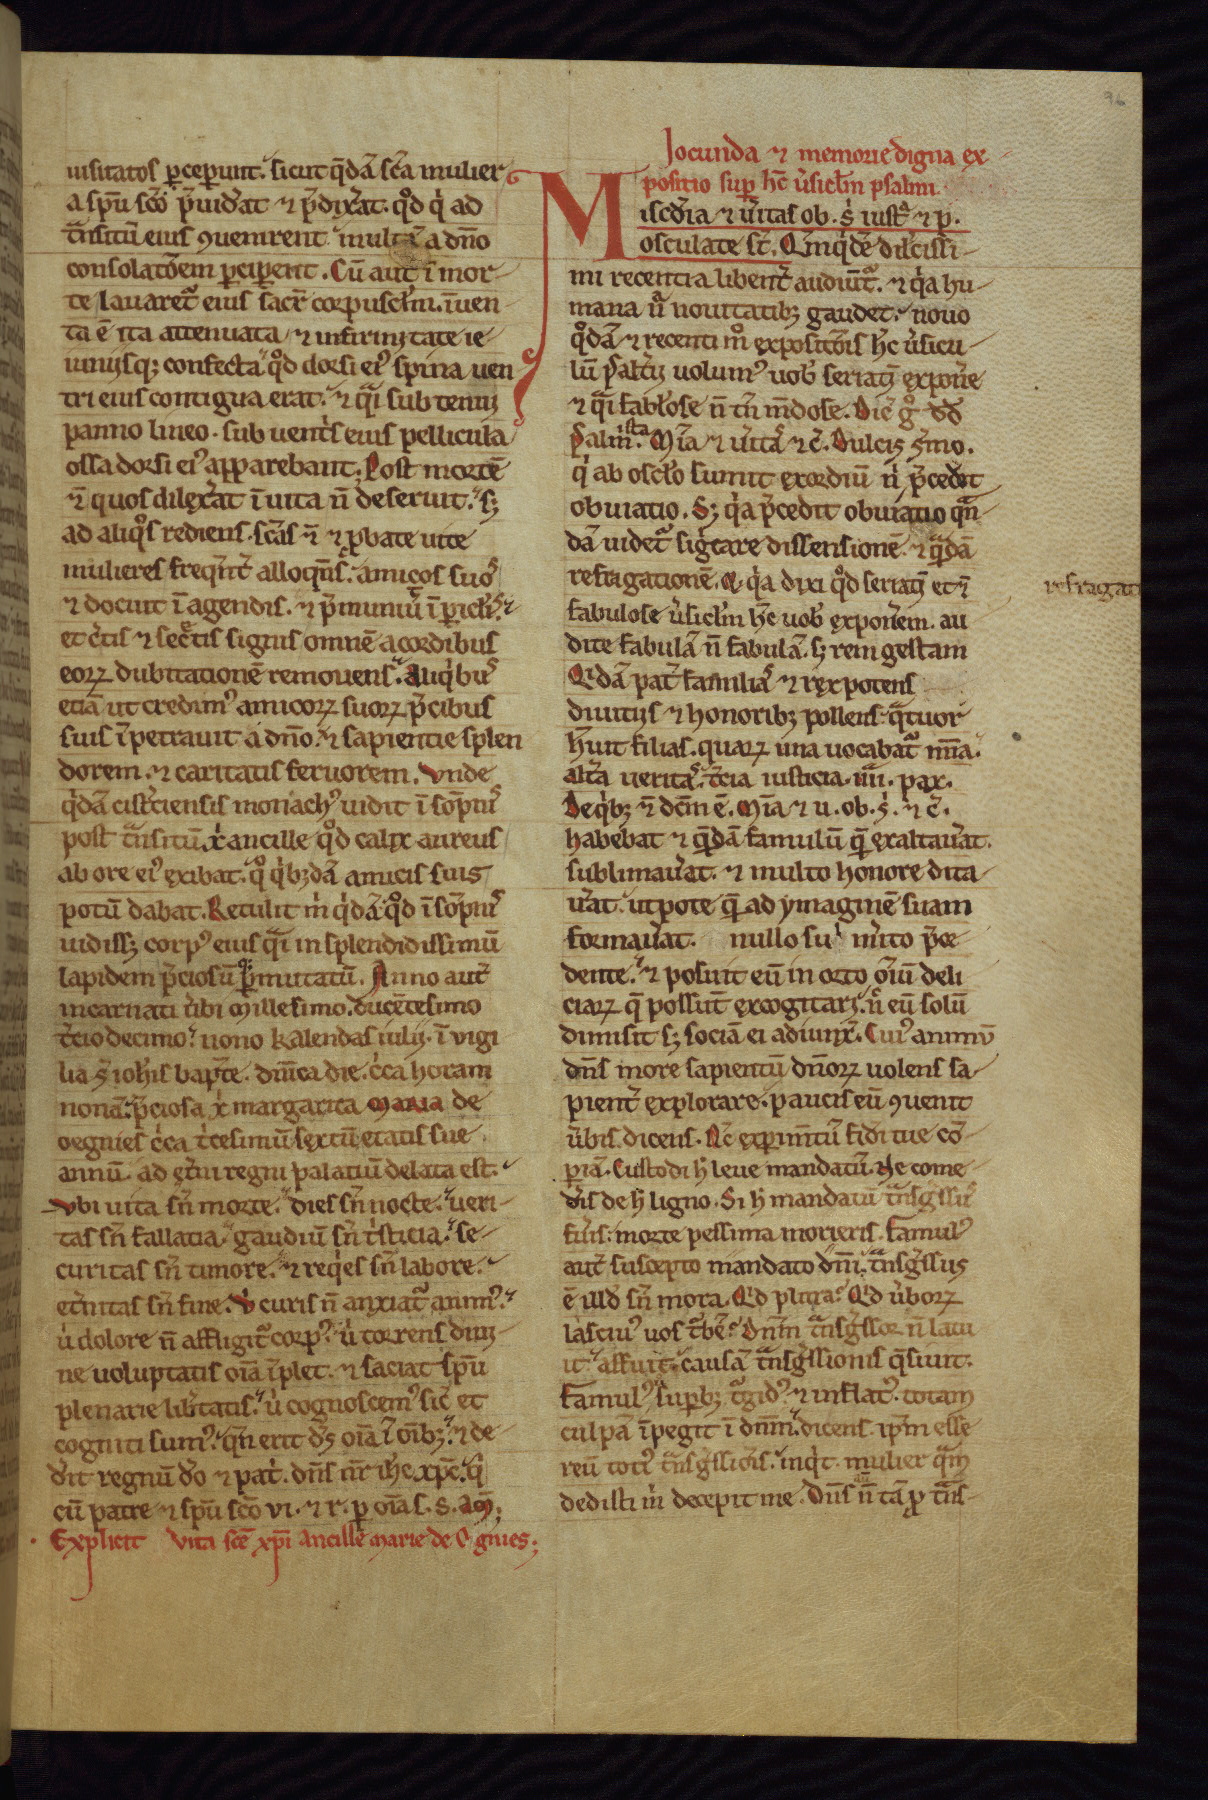 uisitatos ꝑceꝑunt. sicut q̄dā sc̄a mulier
a spū sc̄o p̄uid̓at ⁊ p̄dix̓at. qd̓ q̓ ad
t̄nsitū eius ꝯuenirent multi a dn̄o
consolatōem ꝑciꝑent. Cū aut̄ ī mor
te lauaret̓ eius sacr̄ corpusclm̄. īuen
ta ē ita attenuata ⁊ infirmitate ie
iunijsq; confecta qd̓ dorsi ei᾽ spina uen
tri eius contigua erat. ⁊ q̄i sub tenui
panno lineo. sub uent̓s eius pellicula
ossa dorsi ei᾽ apparebant. Post mortē
⁊̄ quos dilex̓at ī uita n̄ deseruit. sꝫ
ad aliq̓s rediens. sc̄as ⁊̄ ⁊ ꝓbate uite
mulieres freqn̄t̓ alloqn̄s. amicos suos
⁊ docuit ī agendis. ⁊ p̄muniuit ī ꝑicl̓is.
et c̓tis ⁊ sec̓tis signis omnē a cordibus
eoꝝ dubitationē remouens. Aliq̓bus
etiā ut credim᾽ amicoꝝ suoꝝ p̄cibus
suis īpetrauit a dn̄o. ⁊ sapientie splen
dorem. ⁊ caritatis feruorem. Vnde
q̓dā cist̓ciensis monach᾽ uidit ī somp̄nis
post t̄nsitū xp̓i ancille qd̓ calix aureus
ab ore ei᾽ exibat. q̊ q̓bꝫdā amicis suis
potū dabat. Retulit m̓ q̓dā qd̓ ī sompn̓is
uidissꝫ corp᾽ eius q̄i in splendidissimū
lapidem p̄ciosū ꝑmutatū. Anno aut̄
incarnati u̓bi Millesimo. ducētesimo
t̓cio decimo. nono kalendas iulij. ī vigi
lia s̄ ioh̓is bapt̄e. dn̄ica die. c̓ca horam
nonā. p̄ciosa x̓ margarita maria de
oegnies c̓ca t̓cesimū sextū etatis sue
annū. ad et̓ni regni palatiū delata est.
Vbi uita sn̄ morte. dies sn̄ nocte. ueri
tas sn̄ fallatia. gaudiū sn̄ t̓sticia. se
curitas sn̄ timore. ⁊ req̓es sn̄ labore.
et̓nitas sn̄ fine. V̓ curis n̄ anxiat̓ anim᾽.
ù dolore n̄ affligit̓ corp᾽. ù torrens diui
ne uoluptatis oīa īplet. ⁊ saciat spū
plenarie lib̓tatis. ù cognoscem᾽ sic̄ et
cogniti sum᾽. qn̄ erit ds̄ oīa ī oībꝫ. ⁊ de
d̓it regnū d̓o ⁊ pat̓. dn̄s nr̄ ih̄c xp̄c. q̓
cū patre ⁊ spū sc̄o vi. ⁊ r. ꝑ oīa s. s. am̄;
Explicit vita sc̄e xp̄i ancille marie de Ognies;
Jocunda ⁊ memorie digna ex
positio suꝑ hc̄ u̓siclm̄ psalmi.
Misc̓dia ⁊ u̓itas ob. s̓ iust̓ ⁊ p.
osculate st̄. Qm̄ q̓dē dil̓cissi
mi recentia libent̓ audiūt̓. ⁊ q̓a hu
mana ū nouitatibꝫ gaudet. nouo
q̊dā ⁊ recenti m̊ expositōis hc̄ u̓sicu
lū psalt̓ij uolum᾽ uob̓ seriatī expon̓e
⁊ q̄i fabl̓ose n̄ tn̄ m̄dose. Dic̄ g̊ dd̄
psalmista. Mīa ⁊ u̓itas ⁊ c̄. Dulcis s̓mo.
q̓ ab oscl̓o sumit exordiū n̓ p̄cedit
obuiatio. Sꝫ q̓a p̄cedit obuiatio qn̄
dā uidet̓ sig̓care dissensionē. ⁊ q̄dā
refragationē. Et q̓a dixi qd̓ seriatī et ⁊̄
fabulose u̓siclm̄ hc̄ uob̓ expon̓em. au
dite fabulā n̄ fabulā. sꝫ rem gestam
Q̓dā pat̓ familias ⁊ rex potens
diuitijs ⁊ honoribꝫ pollens q̄tuor
h̄uit filias. quaꝝ una uocabat̓ mīa.
alt̓a ueritas. t̓cia iusticia. iiii. pax.
De q̓bꝫ ⁊̄ dc̄m ē. Mīa ⁊ u. ob. s̓. ⁊ c̄.
habebat ⁊ q̄dā famulū q̄ exaltau̓at.
sublimau̓at. ⁊ multo honore dita
u̓at. utpote q̄ ad ymaginē suam
formau̓at. nullo sui m̓ito p̄ce
dente. ⁊ posuit eū in orto oīū deli
ciaꝝ q̄ possūt excogitari. n̄ eū solū
dimisit sꝫ sociā ei adiunx̓. Cui᾽ animū
dn̄s more sapientū dn̄oꝝ uolens sa
pient̓ explorare. paucis eū ꝯuenit
u̓bis dicens. Ac̄ exꝑimt̄ū fidei tue co
piā. Custodi h̓ leue mandatū. Ne come
d̓is de h̓ ligno. Si h̓ mandatū t̄nsg̓ssus
fu̓is. morte pessima morieris. Famul᾽
aut̄ suscepto mandato dn̄i. t̄nsg̓ssus
ē illd̓ sn̄ mora. Qd̓ plura? Qd̓ u̓boꝝ
lasciu᾽ uos t̓bē? Dn̄m t̄nsg̓ssor n̄ latu
it. affuit. causā t̄nsg̓ssionis q̄siuit.
Famul᾽ suꝑbꝫ t̓gid᾽ ⁊ inflat᾽. totam
culpā īpegit ī dn̄m. dicens. ip̄m esse
reū toti᾽ t̄nsg̓ssiōis. inq̓t. mulier q̄m
dedisti m̓ decepit me. Dn̄s n̄ tā ꝓ t̄ns
refragat